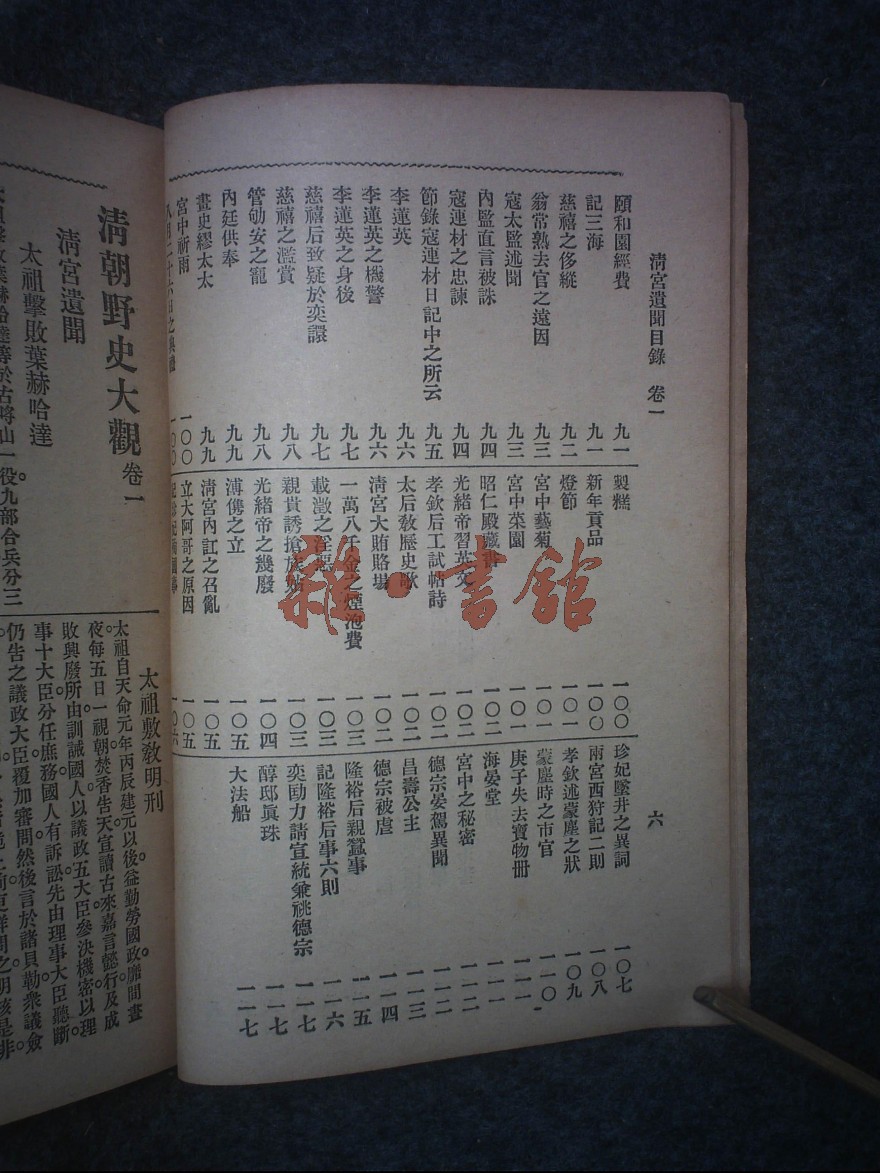 清宮遺聞目錄　卷一
六
頤和園經費　九一
記三海　九一
慈禧之侈縱　九二
翁常熟去官之遠因　九三
寇太監述聞　九三
內監直言被誅　九四
寇連材之忠諫　九四
節錄寇連材日記中之所云　九五
李蓮英　九六
李蓮英之機警　九六
李蓮英之身後　九七
慈禧后致疑於奕譞　九七
慈禧之濫賞　九八
管劬安之寵　九八
內廷供奉　九九
畫史繆太太　九九
宮中祈雨　一〇〇
製糕　一〇〇
新年貢品　一〇〇
燈節　一〇一
宮中藝菊　一〇一
宮中菜園　一〇一
昭仁殿藏書　一〇二
光緒帝習英文　一〇二
孝欽后工試帖詩　一〇二
太后教歷史歌　一〇二
清宮大賄賂場　一〇二
一萬八千金之煙泡費　一〇三
載澂之淫惡　一〇三
親貴誘搶族姑　一〇三
光緒帝之幾廢　一〇四
溥儁之立　一〇五
清宮內訌之召亂　一〇五
立大阿哥之原因　一〇五
珍妃墜井之異詞　一〇七
兩宮西狩記二則　一〇八
孝欽述蒙塵之狀　一〇九
蒙塵時之市官　一一〇
庚子失去寶物冊　一一一
海晏堂　一一一
宮中之秘密　一一二
德宗晏駕異聞　一一二
昌壽公主　一一三
德宗被虐　一一四
隆裕后親蠶事　一一五
記隆裕后事六則　一一六
奕劻力請宣統兼祧德宗　一一七
醇邸眞珠　一一七
大法船　一一七
清朝野史大觀　卷一
清宮遺聞
太祖擊敗葉赫哈達
太祖敷教明刑
太祖自天命元年丙辰建元以後益勤勞國政廊間晝
夜每五日一視朝焚香告天宣讀古來嘉言懿行及成
敗興廢所由訓誡國人以議政五大臣參決機密以理
事十大臣分任庶務國人有訴訟先由理事大臣聽斷
仍告之議政大臣覆加審問然後言於諸貝勒衆議僉